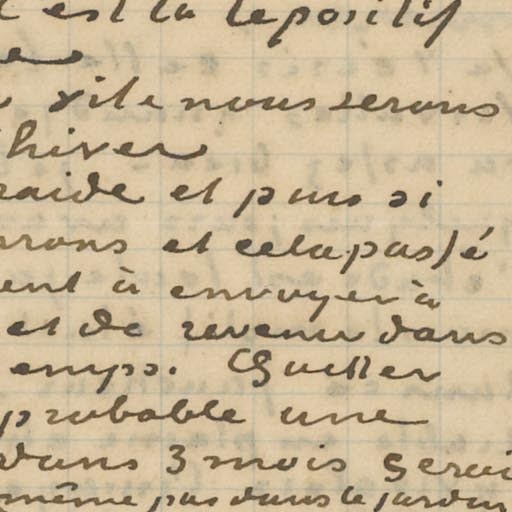 est la le positif
vite nous serons
hiver
raide et puis si
rons et cela passé
ent à envoyer à
et de revenir dans
emps. Quitter
probable une
dans 3 mois serai
même pas dans le jardin